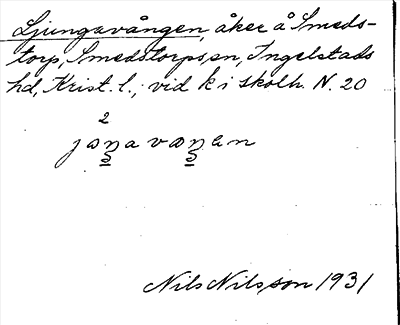 Ljungavången, åker å Smeds-
torp, Smedstorps sn, Ingelstads
hd, Krist. l.; vid k i skolh. N. 20
2
jaŋavaŋen
Nils Nilsson 1931